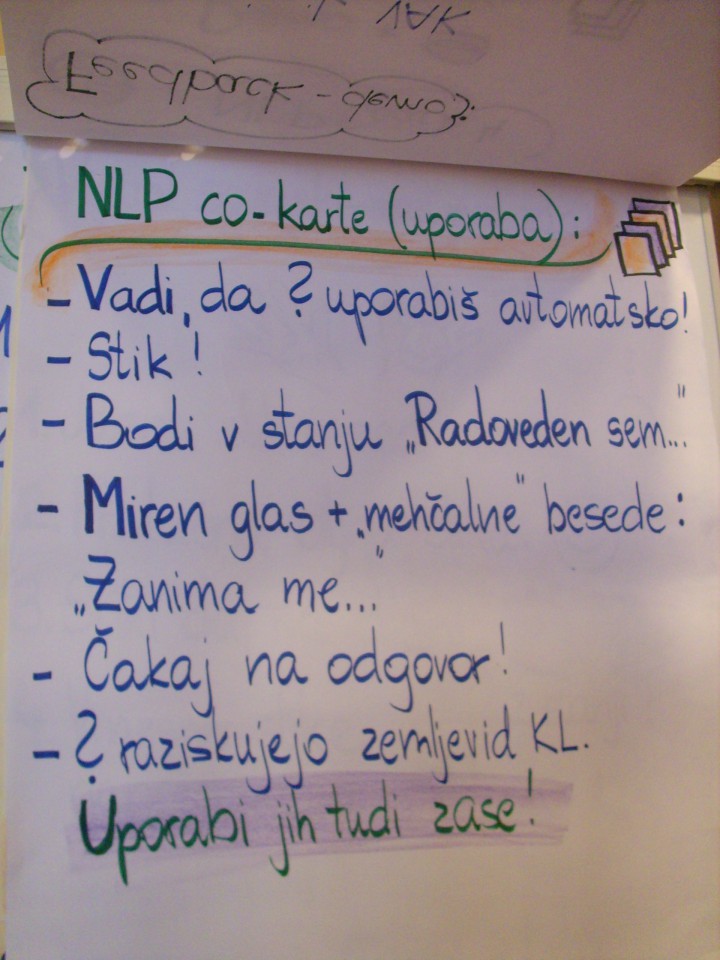 VAK
Feedback - demo:
NLP co-karte (uporaba):
- Vadi, da ? uporabiš avtomatsko!
- Stik!
- Bodi v stanju „Radoveden sem..."
- Miren glas + „mehčalne" besede:
„Zanima me..."
- Čakaj na odgovor!
- ? raziskujejo zemljevid KL.
Uporabi jih tudi zase!